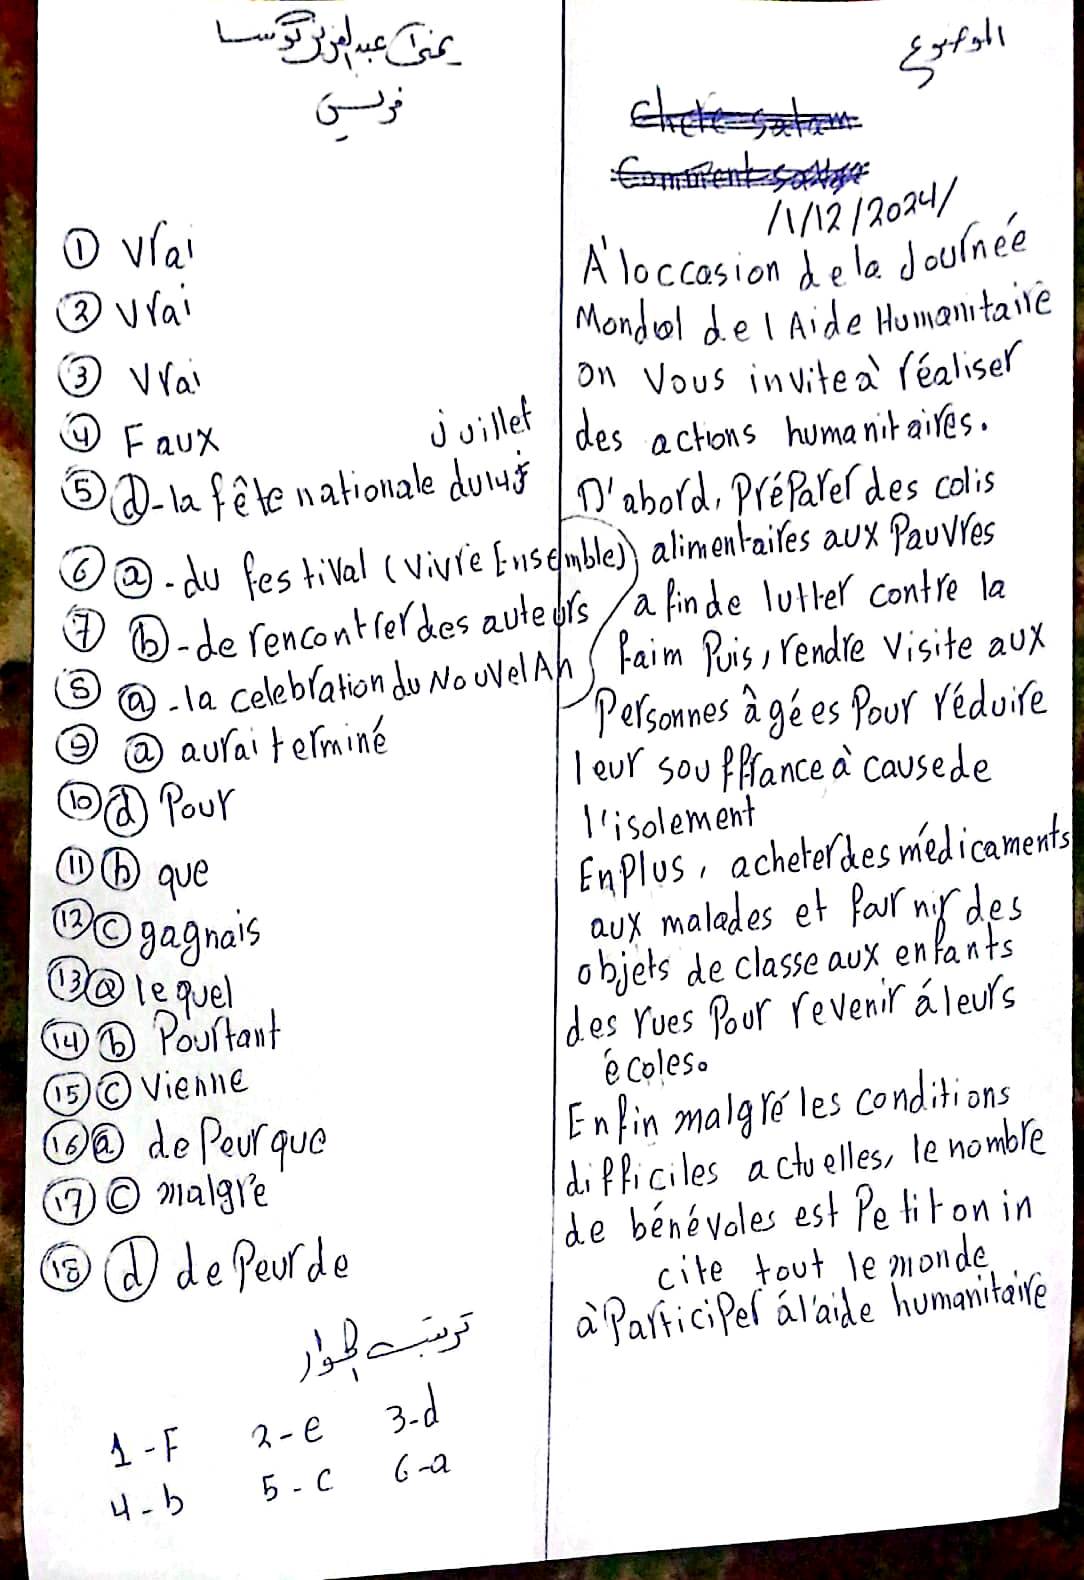 يمنى عبدالعزيز موسى
فرنسي
① Vrai
② Vrai
③ Vrai
④ Faux
⑤ ⓓ-la fête nationale du 14 juillet
⑥ ⓐ-du festival (Vivre Ensemble)
⑦ ⓑ-de rencontrer des auteurs
⑧ ⓐ-la celebration du Nouvel An
⑨ ⓐ aurai terminé
⑩ ⓓ Pour
⑪ ⓑ que
⑫ ⓒ gagnais
⑬ ⓐ lequel
⑭ ⓑ Pourtant
⑮ ⓒ Vienne
⑯ ⓐ de Peur que
⑰ ⓒ malgré
⑱ ⓓ de Peur de
ترتيب الحوار
1-F 2-e 3-d
4-b 5-c 6-a
الموضوع
Chete Salam
Comment
/1/12/2024/
A'loccasion de la Journée
Mondial de l Aide Humanitaire
on Vous invite à réaliser
des actions humanitaires.
D'abord, Préparer des colis
alimentaires aux Pauvres
a fin de lutter contre la
faim Puis, rendre Visite aux
Personnes âgées Pour réduire
leur souffrance à cause de
l'isolement
En Plus, acheter des médicaments
aux malades et fournir des
objets de classe aux enfants
des rues Pour revenir á leurs
écoles.
Enfin malgré les conditions
difficiles actuelles, le nombre
de bénévoles est Petit on in
cite tout le monde
à Participer ál'aide humanitaire